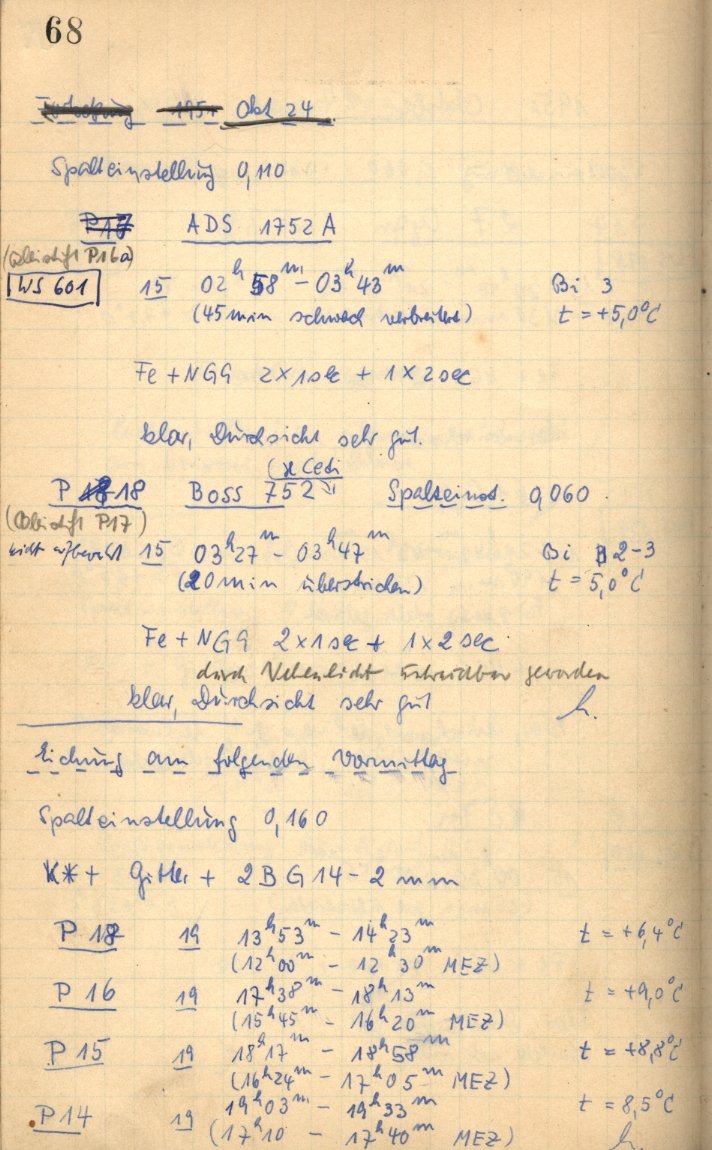 68
Fortsetzung 1951 Okt 24
Spalteinstellung 0,110
P17 ADS 1752 A
(Bleistift P16a)
WS 601 15 02h 58m - 03h 43m Bi 3
(45 min schwach verbreitert) t = +5,0°C
Fe + NGG 2×1 sec + 1×2 sec
klar, Durchsicht sehr gut.
(ϰ Ceti)
P 18 Boss 752 Spalteinst. 0,060
(Bleistift P17)
nicht aufbewahrt 15 03h 27m - 03h 47m Bi 2-3
(20 min überstrichen) t = 5,0°C
Fe + NGG 2×1 sec + 1×2 sec
durch Nebenlicht unbrauchbar geworden
klar, Durchsicht sehr gut h.
Eichung am folgenden Vormittag
Spalteinstellung 0,160
K* + Gitter + 2 BG 14 - 2 mm
P 18 19 13h 53m - 14h 23m t = +6,4°C
(12h 00m - 12h 30m MEZ)
P 16 19 17h 38m - 18h 13m t = +9,0°C
(15h 45m - 16h 20m MEZ)
P 15 19 18h 17m - 18h 58m t = +8,8°C
(16h 24m - 17h 05m MEZ)
P 14 19 19h 03m - 19h 33m t = 8,5°C
(17h 10 - 17h 40m MEZ) h.